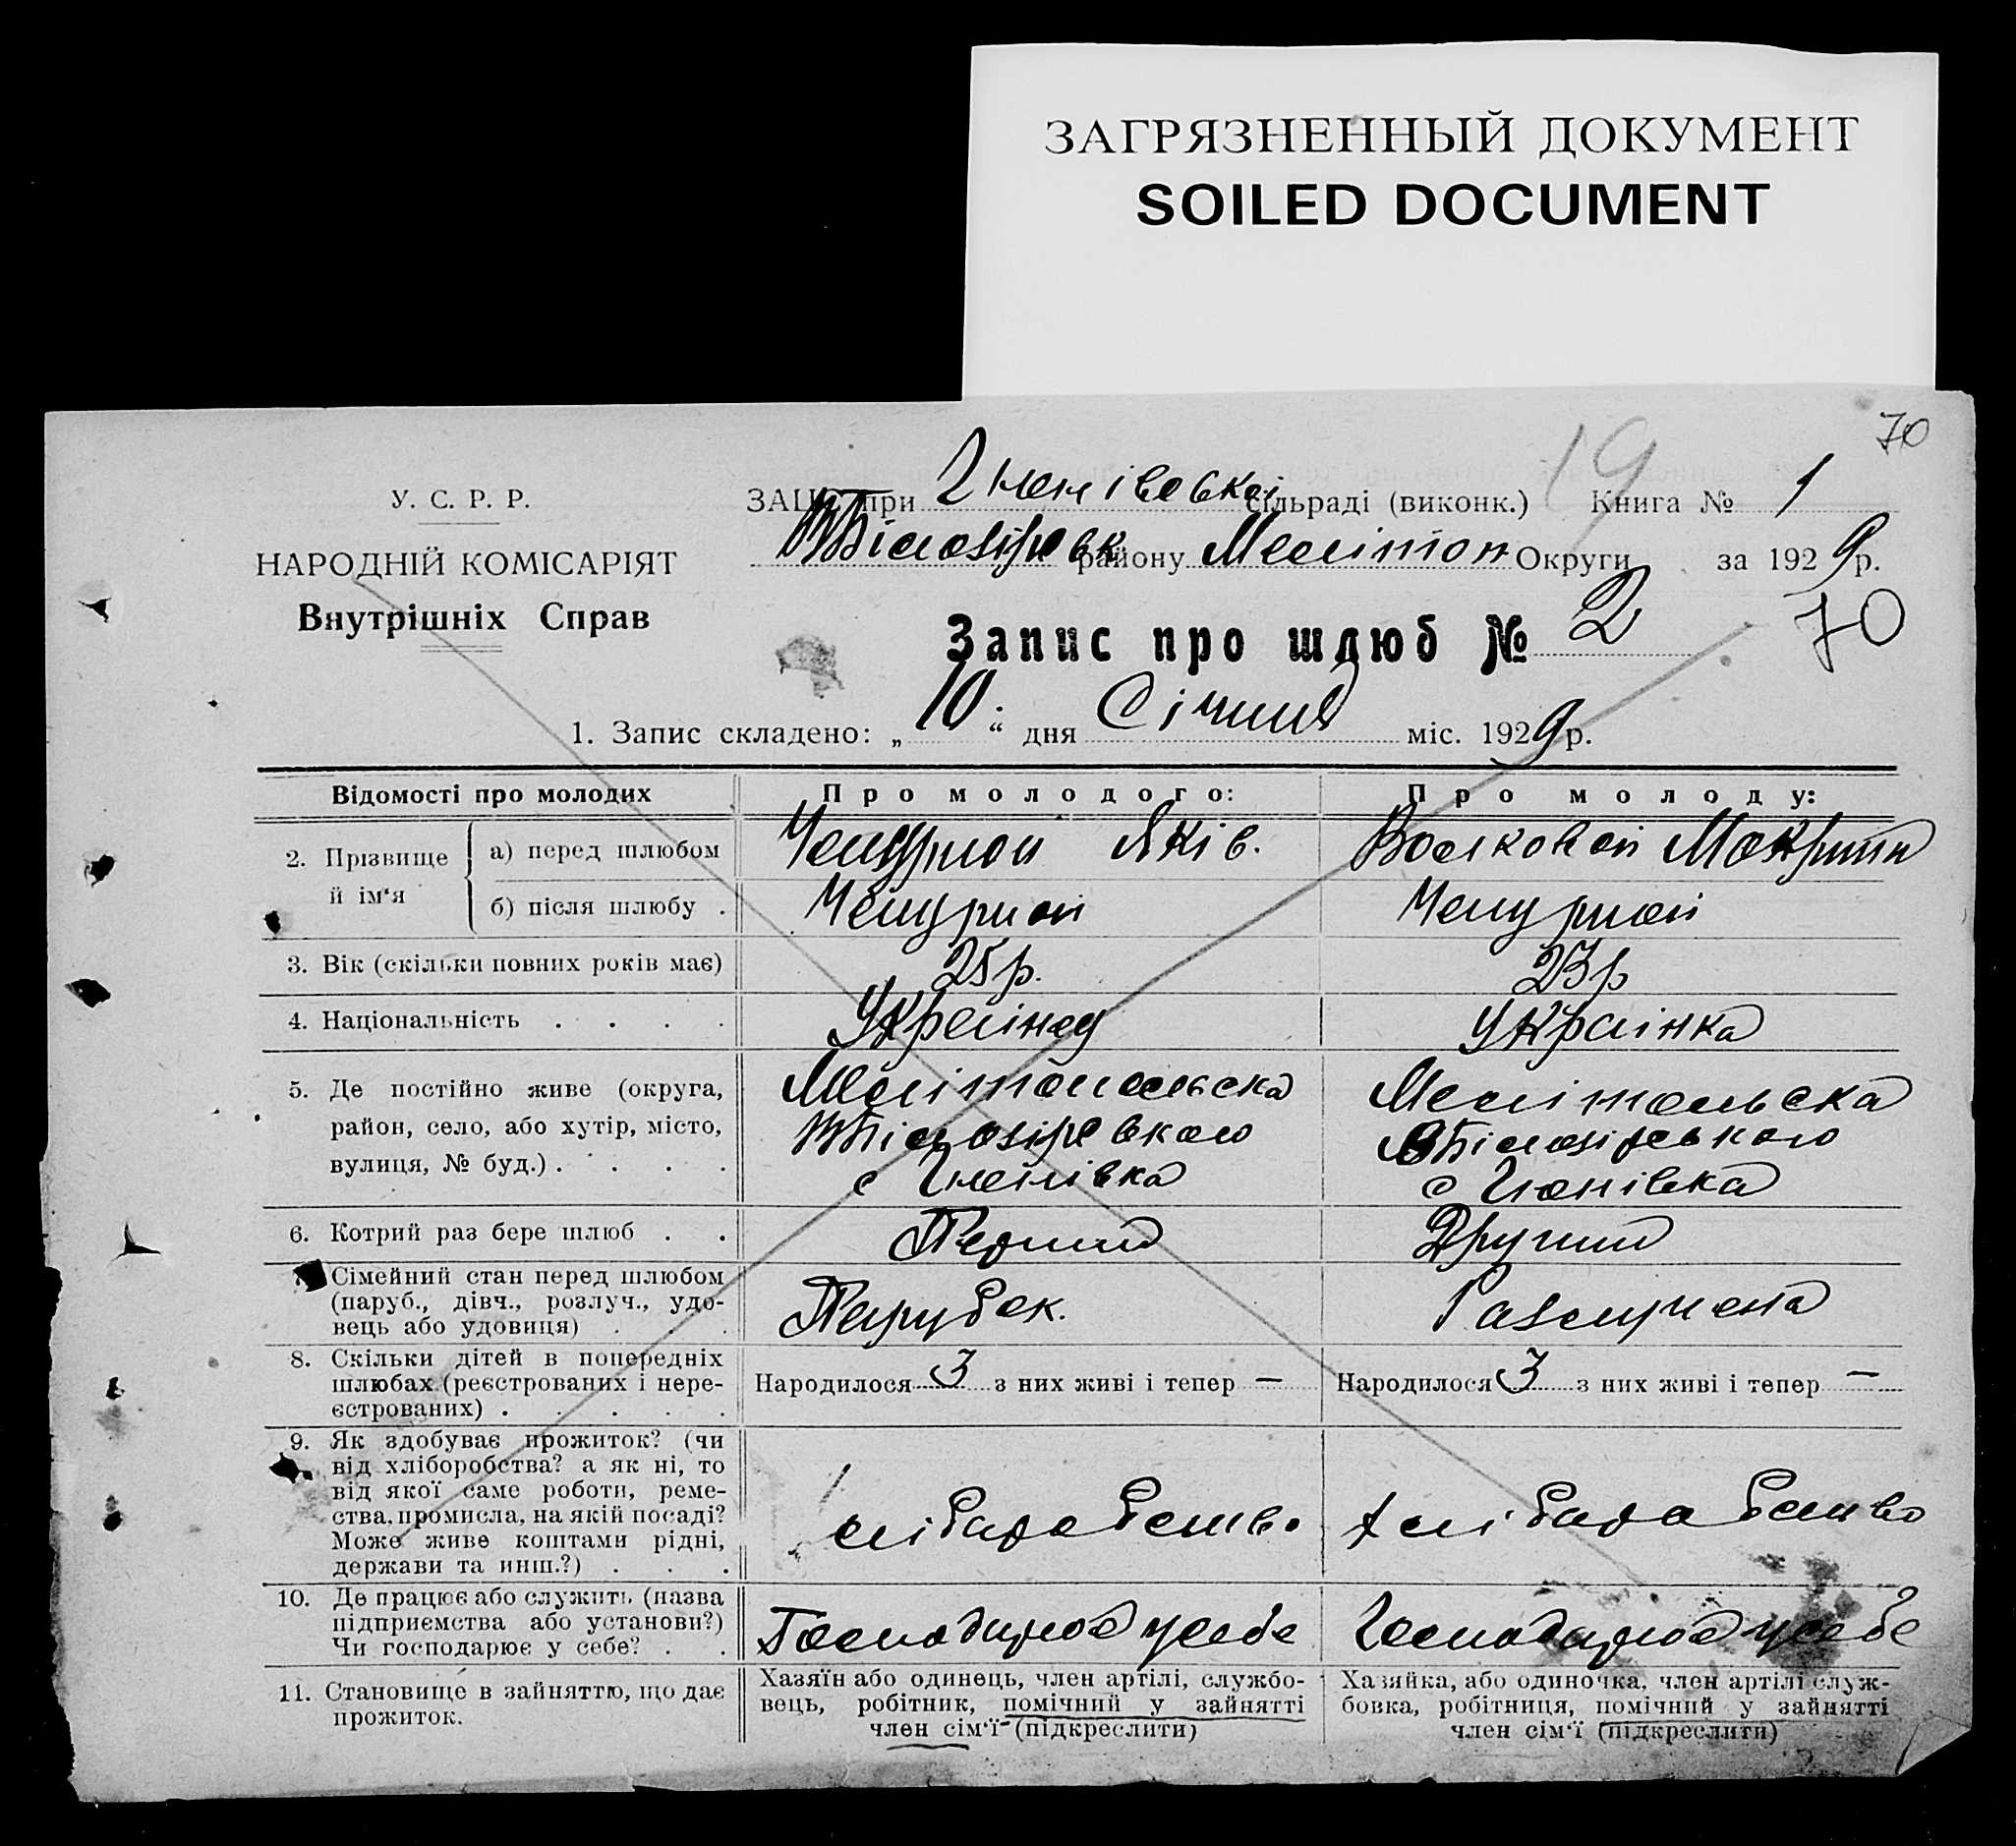 ЗАГРЯЗНЕННЫЙ ДОКУМЕНТ
SOILED DOCUMENT
70
19
У. С. Р. Р.
НАРОДНІЙ КОМІСАРІЯТ
Внутрішніх Справ
ЗАЦС при сільраді (виконк.) Книга № 1
району Мелітоп Округи за 1929 р.
Запис про шлюб № 2
70
1. Запис складено: „10“ дня Січния міс. 1929 р.
Відомості про молодих
Про молодого:
Про молоду:
2. Прізвище й ім‘я
а) перед шлюбом
Яків.
б) після шлюбу .
3. Вік (скільки повних років має)
25 р.
23 р
4. Національність . . . .
Українец
Українка
5. Де постійно живе (округа,
район, село, або хутір, місто,
вулиця, № буд.) . . . .
Мелітопольска
ВБілозірського
с
Мелітопольска
ВБілозірського
с Гюнівка
6. Котрий раз бере шлюб . .
Перший
Другий
Сімейний стан перед шлюбом
(паруб., дівч., розлуч., удо-
вець або удовиця) . . .
Парубок.
8. Скільки дітей в попередніх
шлюбах (реєстрованих і нере-
єстрованих) . . . . .
Народилося 3 з них живі і тепер —
Народилося 3 з них живі і тепер —
9. Як здобуває прожиток? (чи
від хліборобства? а як ні, то
від якої саме роботи, реме-
ства, промисла, на якій посаді?
Може живе коштами рідні,
держави та инш.?) . . .
10. Де працює або служить (назва
підприємства або установи?)
Чи господарює у себе? . .
11. Становище в зайняттю, що дає
прожиток.
Хазяїн або одинець, член артілі, службо-
вець, робітник, помічний у зайнятті
член сім‘ї (підкреслити)
Хазяйка, або одиночка, член артілі служ-
бовка, робітниця, помічний у зайнятті
член сім‘ї (підкреслити)